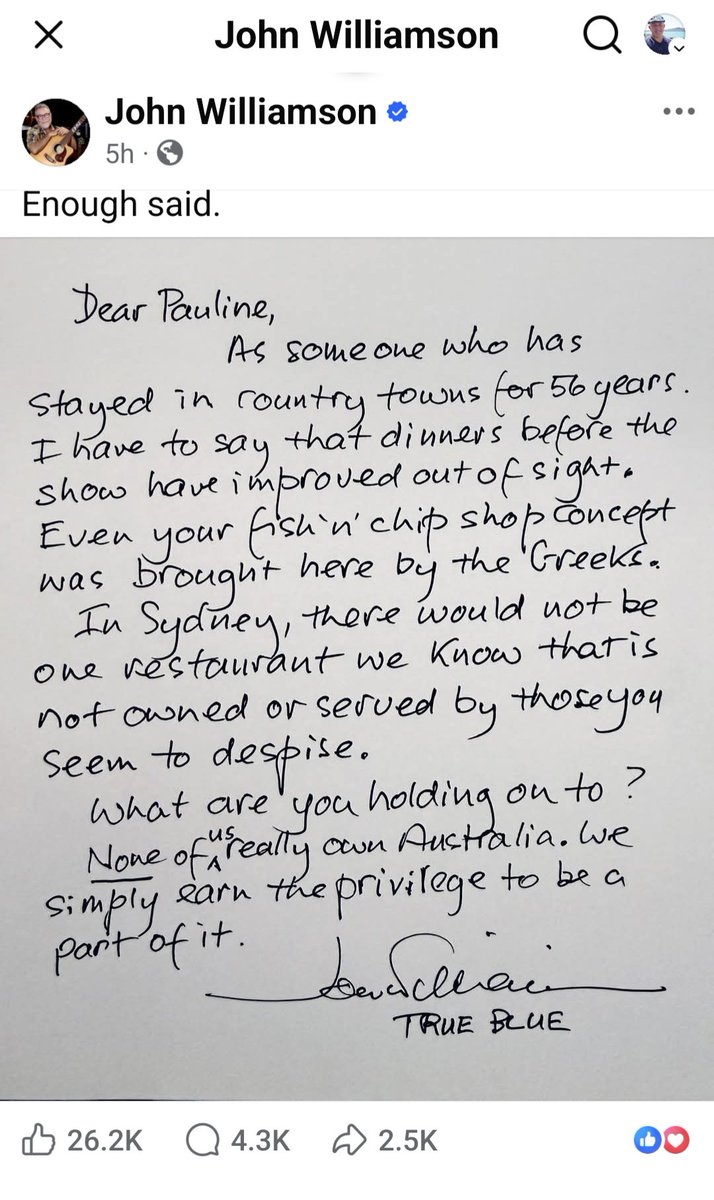 John Williamson
John Williamson
5h ·
Enough said.
Dear Pauline,
As someone who has
stayed in country towns for 56 years.
I have to say that dinners before the
show have improved out of sight.
Even your fish 'n' chip shop concept
was brought here by the Greeks.
In Sydney, there would not be
one restaurant we know that is
not owned or served by those you
seem to despise.
What are you holding on to?
None of us really own Australia. We
simply earn the privilege to be a
part of it.
TRUE BLUE
26.2K 4.3K 2.5K